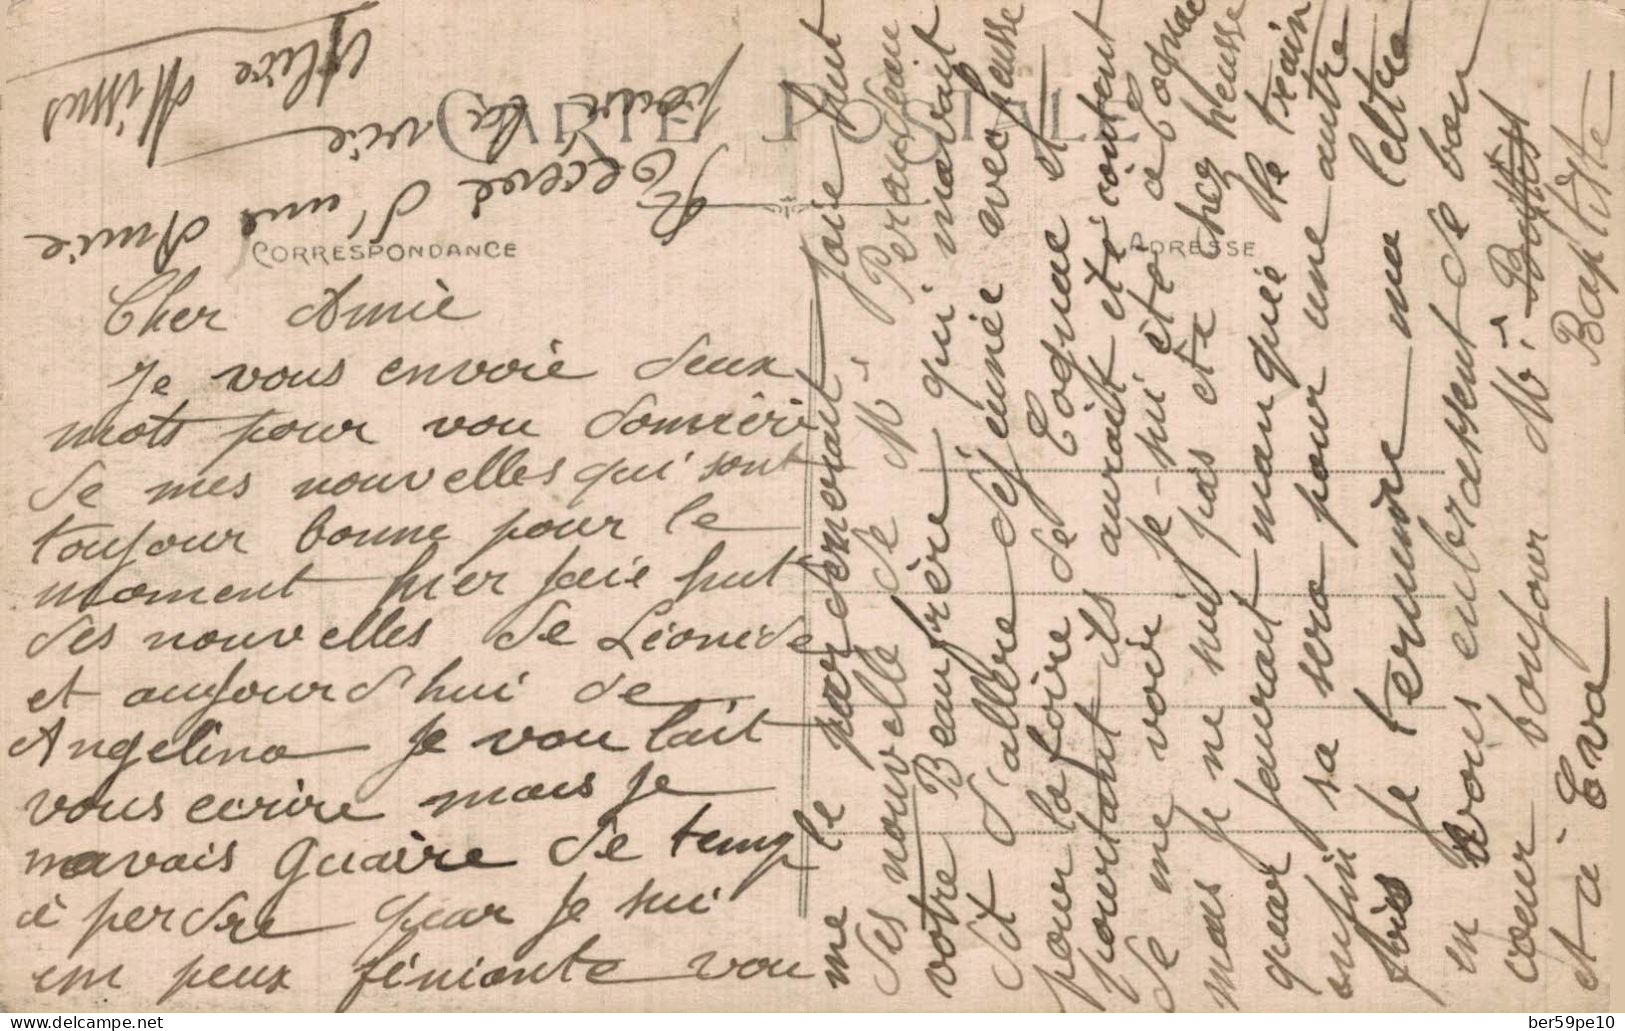 CARTE POSTALE
CORRESPONDANCE
ADRESSE
Cher Amie
Je vous envoie deux
mots pour vou donnéri
de mes nouvelles qui sont
toujour bonne pour le
moment hier jaie hut
des nouvelles de Léonide
et aujourd'hui de
Angelina je vou lait
vous ecrire mais je
navais guaire de temp
à perdre quar je sui
un peux féniante vou
me le pardemorait jaie hut
des nouvelle de Mr Peraudeau
votre Beaufrère qui mavait
dit d'allere déjeunée avec heusse
pour la foire de Cognac et
pourtant ils aurait été content
de me voir je sui été a Cognac
mais je ne sui pas été chez heusse
quar jaurait manquée le train
enfin sa sera pour une autre
fois je termine ma lettre
en vous enbrassent de bon
coeur bonjour Mr Baptiste
et a Eva
Recevé d'une Amie
pour la vie
Alice Missus
ber59pe10